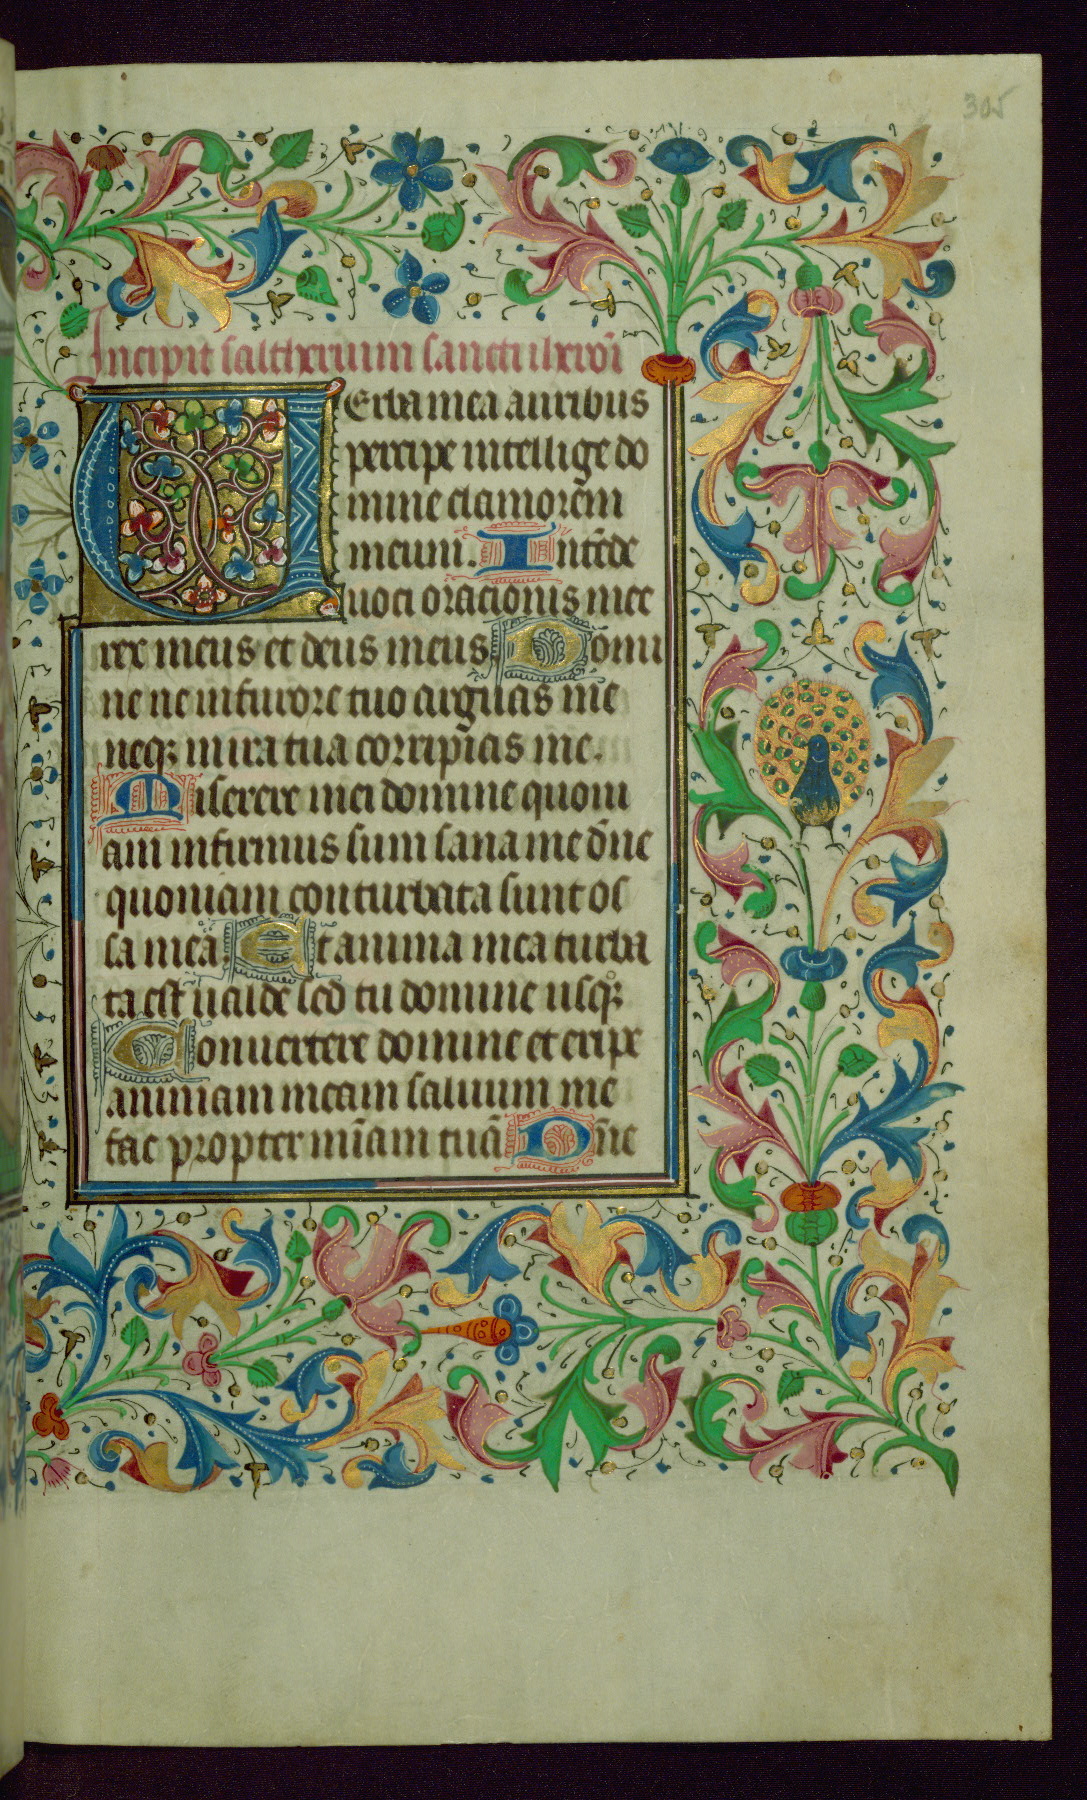 305
Incipit saltherium sancti iheroi
VErba mea auribus
percipe intellige do
mine clamorem
meum. Intēde
uoci oracionis mee
rex meus et deus meus Domi
ne ne in furore tuo arguas me
neqꝫ in ira tua corripias me.
Miserere mei domine quoni
am infirmus sum sana me dn̄e
quoniam conturbata sunt os
sa mea. Et anima mea turba
ta est ualde sed tu domine usqꝫ
Conuertere domine et eripe
animam meam saluum me
fac propter mīam tuā Dn̄e